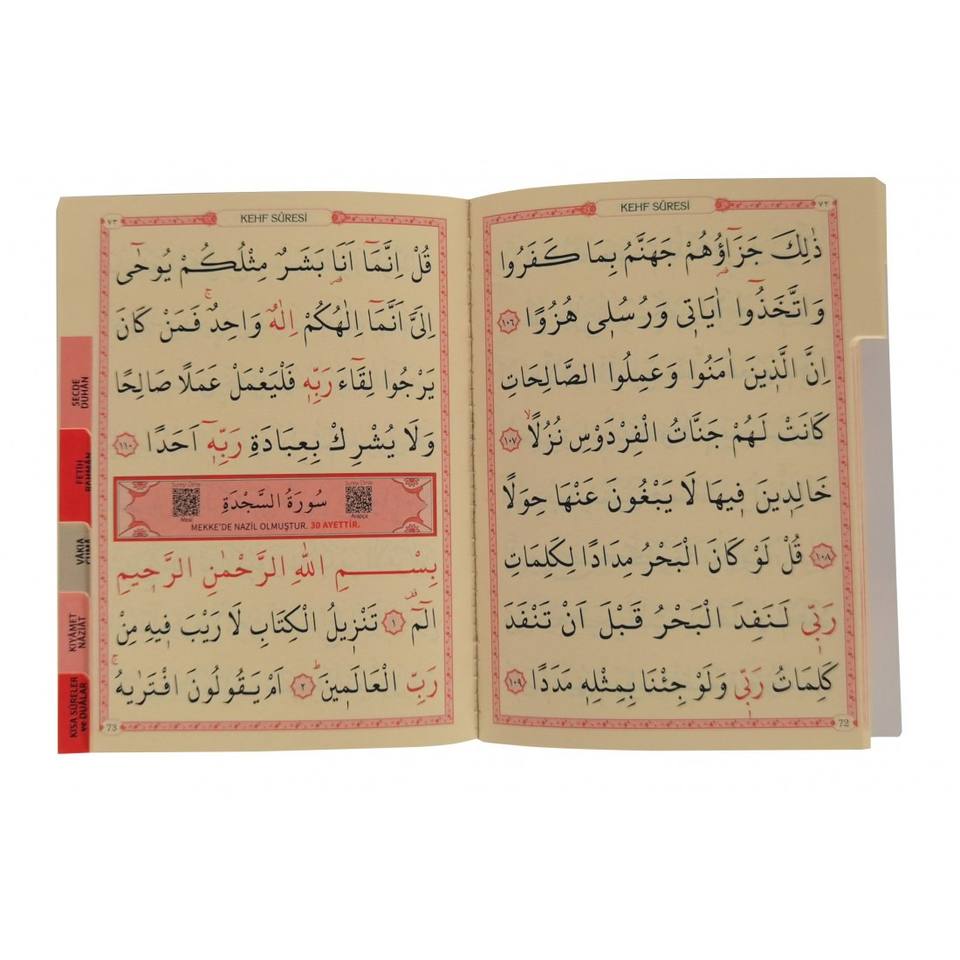 KEHF SÛRESİ
٧٢
ذٰلِكَ جَزَٓاؤُ۬هُمْ جَهَنَّمُ بِمَا كَفَرُوا
وَاتَّخَذُٓوا اٰيَاتٖي وَرُسُلٖي هُزُوًا ﴿١٠٦﴾
اِنَّ الَّذٖينَ اٰمَنُوا وَعَمِلُوا الصَّالِحَاتِ
كَانَتْ لَهُمْ جَنَّاتُ الْفِرْدَوْسِ نُزُلًاۙ ﴿١٠٧﴾
خَالِدٖينَ فٖيهَا لَا يَبْغُونَ عَنْهَا حِوَلًا
﴿١٠٨﴾ قُلْ لَوْ كَانَ الْبَحْرُ مِدَادًا لِكَلِمَاتِ
رَبّٖي لَنَفِدَ الْبَحْرُ قَبْلَ اَنْ تَنْفَدَ
كَلِمَاتُ رَبّٖي وَلَوْ جِئْنَا بِمِثْلِهٖ مَدَدًا ﴿١٠٩﴾
72
KEHF SÛRESİ
٧٣
قُلْ اِنَّمَٓا اَنَا۬ بَشَرٌ مِثْلُكُمْ يُوحٰٓى
اِلَيَّ اَنَّمَٓا اِلٰهُكُمْ اِلٰهٌ وَاحِدٌۚ فَمَنْ كَانَ
يَرْجُوا لِقَٓاءَ رَبِّهٖ فَلْيَعْمَلْ عَمَلًا صَالِحًا
وَلَا يُشْرِكْ بِعِبَادَةِ رَبِّهٖٓ اَحَدًا ﴿١١٠﴾
سُورَةُ السَّجْدَةِ
MEKKE'DE NAZİL OLMUŞTUR. 30 AYETTİR.
بِسْمِ اللهِ الرَّحْمٰنِ الرَّحٖيمِ
الٓمٓۚ ﴿١﴾ تَنْزٖيلُ الْكِتَابِ لَا رَيْبَ فٖيهِ مِنْ
رَبِّ الْعَالَمٖينَۜ ﴿٢﴾ اَمْ يَقُولُونَ افْتَرٰيهُۚ
73
SECDE
DUHÂN
FETİH
VÂKIA
KIYÂMET
NÂZİÂT
KISA SÛRELER
ve DUÂLAR